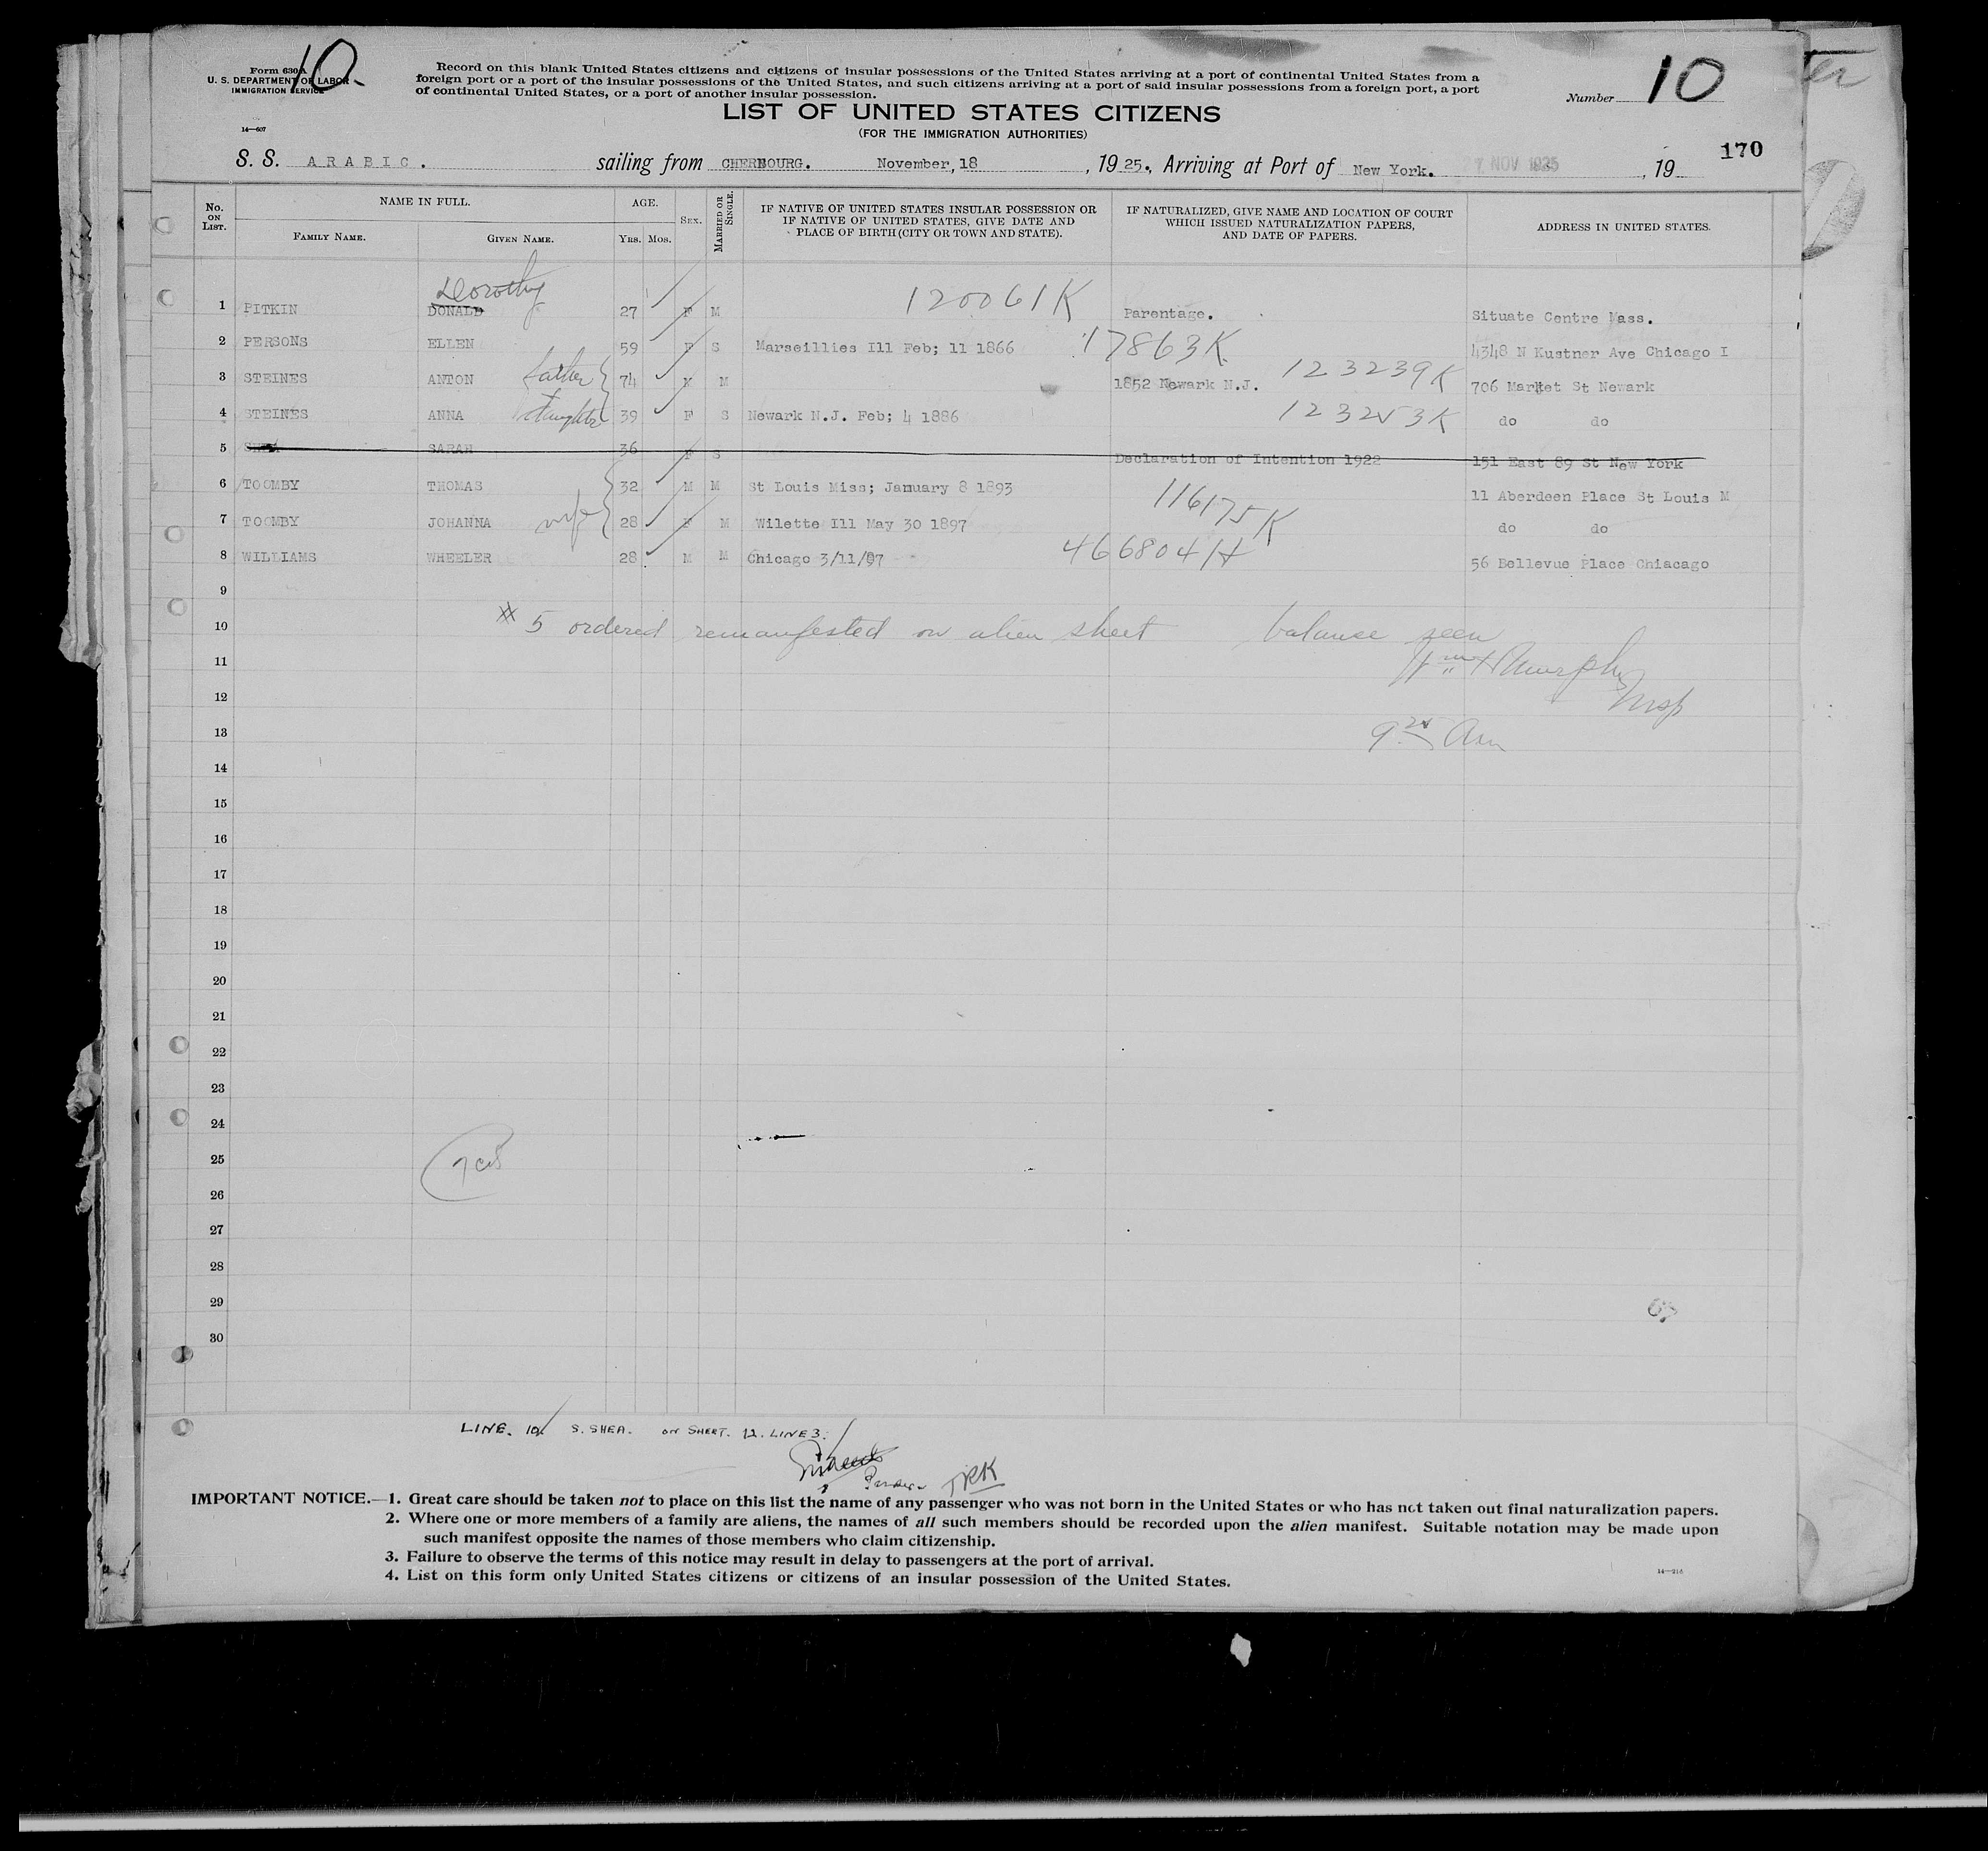 10.
Form 630
U. S. DEPARTMENT OF LABOR
IMMIGRATION SERVICE
14—607
Record on this blank United States citizens and citizens of insular possessions of the United States arriving at a port of continental United States from a
foreign port or a port of the insular possessions of the United States, and such citizens arriving at a port of said insular possessions from a foreign port, a port
of continental United States, or a port of another insular possession.
LIST OF UNITED STATES CITIZENS
(FOR THE IMMIGRATION AUTHORITIES)
Number 10
170
S. S. ARABIC. sailing from CHERBOURG. November, 18, 1925., Arriving at Port of New York. 27 NOV 1925, 19
No. ON LIST. NAME IN FULL. FAMILY NAME. GIVEN NAME. AGE. YRS. MOS. SEX. MARRIED OR SINGLE. IF NATIVE OF UNITED STATES INSULAR POSSESSION OR IF NATIVE OF UNITED STATES, GIVE DATE AND PLACE OF BIRTH (CITY OR TOWN AND STATE). IF NATURALIZED, GIVE NAME AND LOCATION OF COURT WHICH ISSUED NATURALIZATION PAPERS, AND DATE OF PAPERS. ADDRESS IN UNITED STATES.
Dorothy
1 PITKIN DONALD 27 F M 120061K Parentage. Situate Centre Mass.
2 PERSONS ELLEN 59 F S Marseillies Ill Feb; 11 1866 17863K 4348 N Kustner Ave Chicago I
3 STEINES ANTON father 74 M M 1852 Newark N.J. 123239K 706 Market St Newark
4 STEINES ANNA daughter 39 F S Newark N.J. Feb; 4 1886 123253K do do
5 SHEA SARAH 36 F S Declaration of Intention 1922 151 East 89 St New York
6 TOOMBY THOMAS 32 M M St Louis Miss; January 8 1893 11 Aberdeen Place St Louis M
7 TOOMBY JOHANNA wife 28 F M Wilette Ill May 30 1897 116175K do do
8 WILLIAMS WHEELER 28 M M Chicago 3/11/97 466804H 56 Bellevue Place Chiacago
9
10 # 5 ordered remanifested on alien sheet balance seen
11 Wm H Murphy
12 Insp
13 9 25 Am
14
15
16
17
18
19
20
21
22
23
24
25
26
27
28
29
30
LINE. 10 S. SHEA. ON SHEET. 12. LINE 3.
IMPORTANT NOTICE.—1. Great care should be taken not to place on this list the name of any passenger who was not born in the United States or who has not taken out final naturalization papers.
2. Where one or more members of a family are aliens, the names of all such members should be recorded upon the alien manifest. Suitable notation may be made upon
such manifest opposite the names of those members who claim citizenship.
3. Failure to observe the terms of this notice may result in delay to passengers at the port of arrival.
4. List on this form only United States citizens or citizens of an insular possession of the United States.